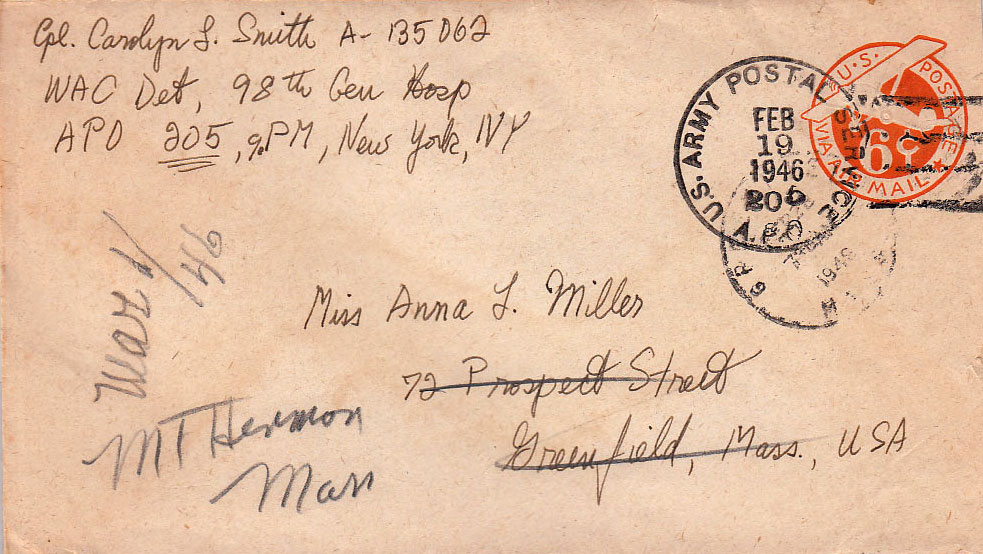 Cpl. Carolyn L. Smith A-135062
WAC Det, 98th Gen Hosp
APO 205, % PM, New York, NY
U.S. ARMY POSTAL SERVICE
FEB
19
1946
A.P.O.
U.S. POSTAGE
6¢
VIA AIR MAIL
1946
Mar 1/46
Miss Anna L. Miller
72 Prospect Street
Greenfield, Mass., USA
MT Hermon
Mass